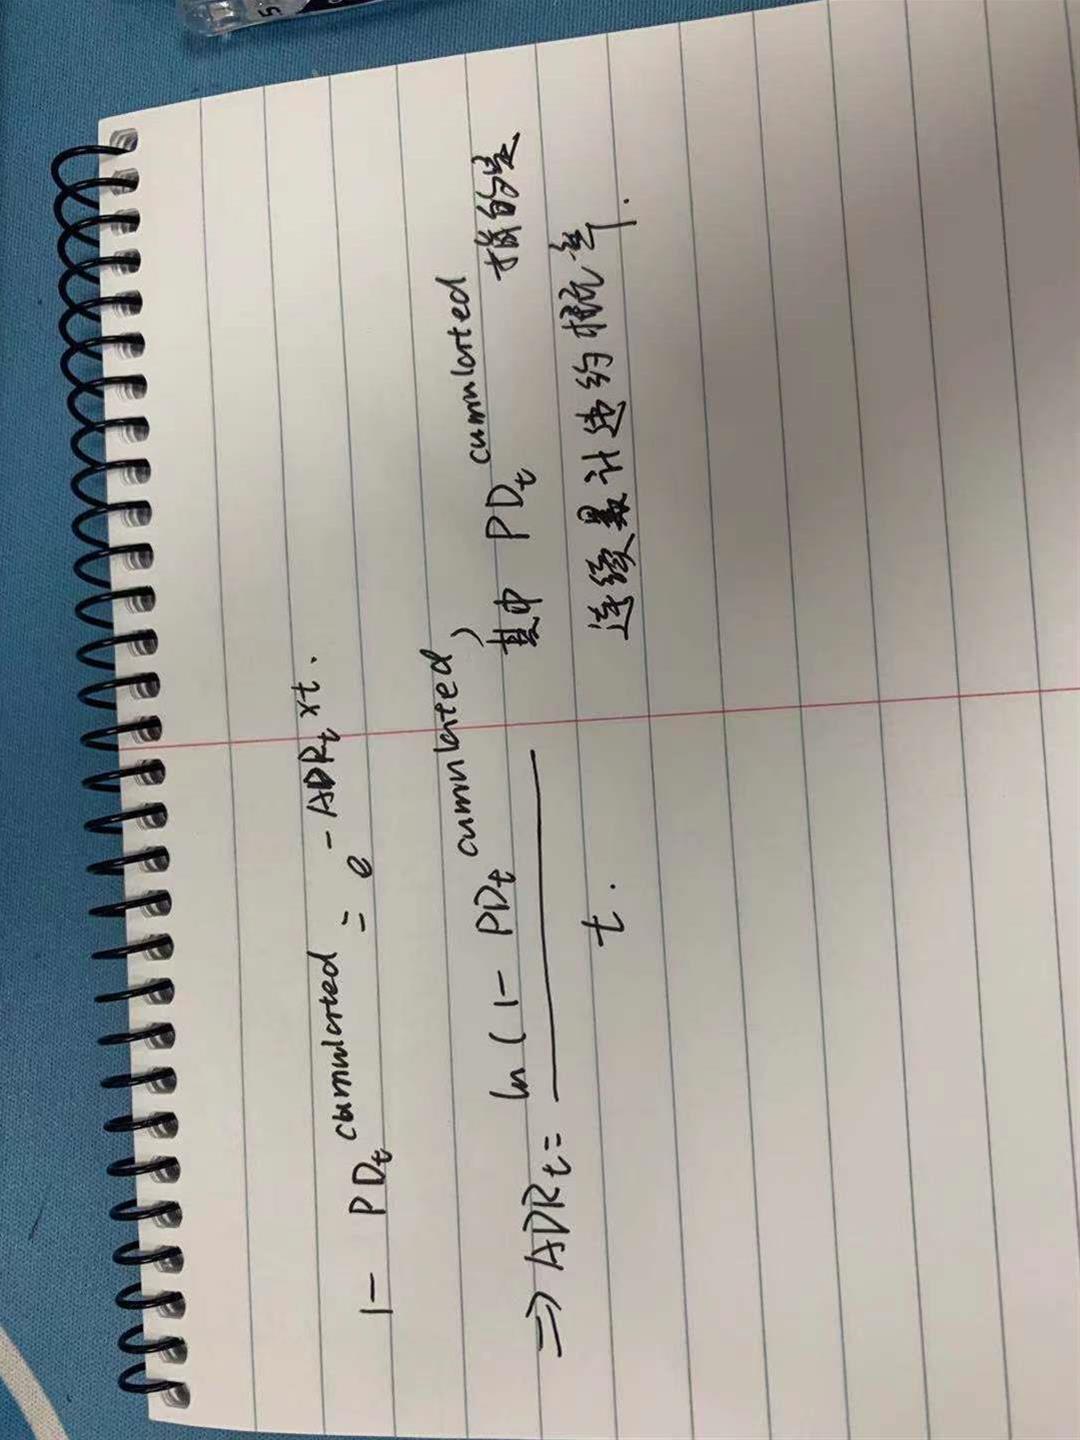 1 - PD_t^cumulated = e^-ADR_t×t.
⇒ ADR_t = ln(1 - PD_t^cumulated) / t.
其中 PD_t^cumulated 指的是
连续累计违约概率.